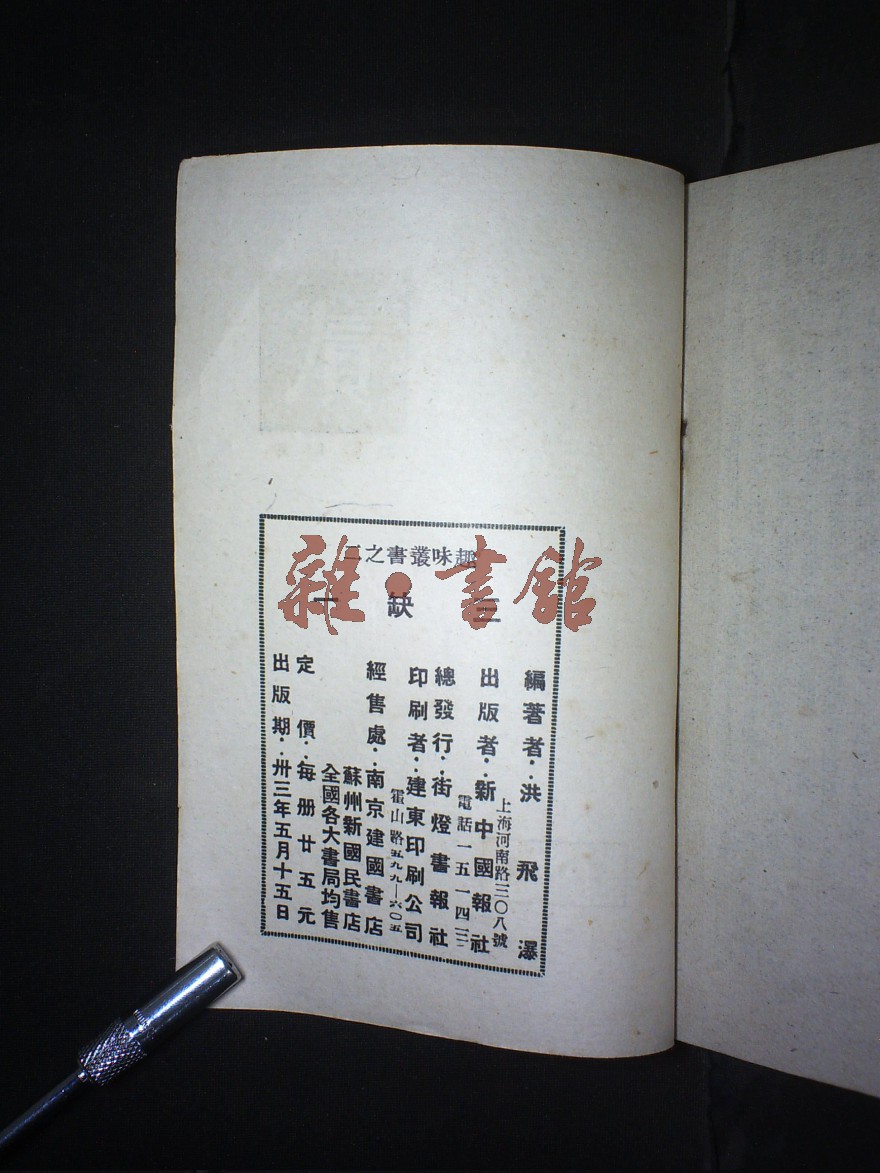 雜・書館
趣味叢書之
三缺一
編著者：洪飛瀑
上海河南路三〇八號
出版者：新中國報社
電話一五一四
總發行：街燈書報社
印刷者：建東印刷公司
霍山路五九九—六〇五
經售處：南京建國書店
蘇州新國民書店
全國各大書局均售
定價：每册廿五元
出版期：卅三年五月十五日